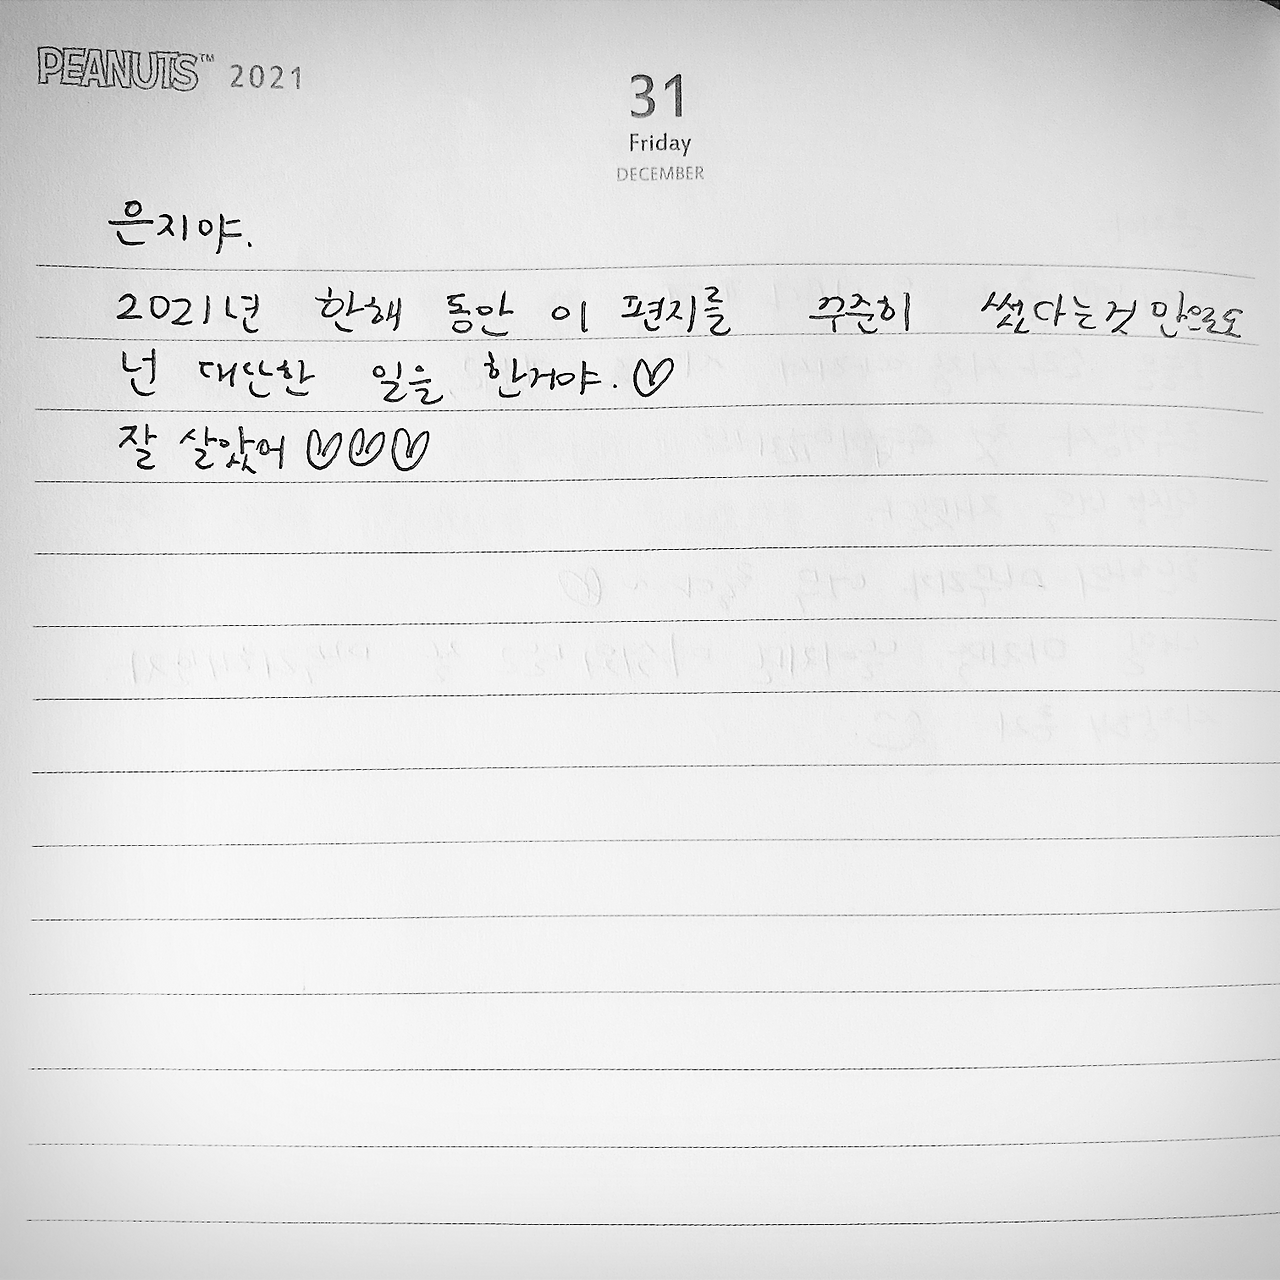 PEANUTS™ 2021
31
Friday
DECEMBER
은지야.
2021년 한해 동안 이 편지를 꾸준히 썼다는것 만으로도
넌 대단한 일을 한거야. ♡
잘 살았어 ♡♡♡